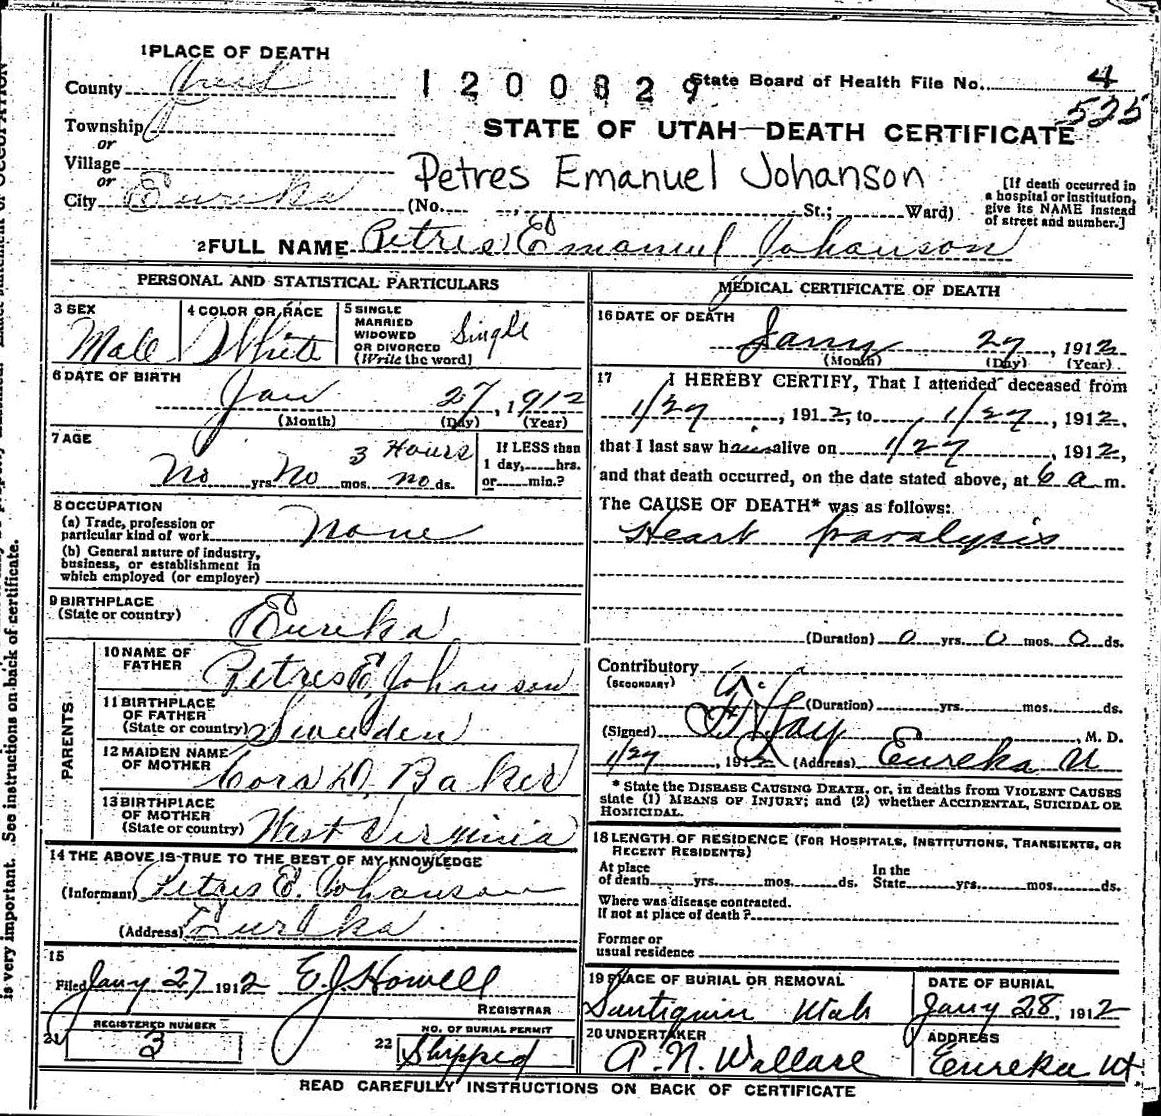 1 PLACE OF DEATH
County Juab
1200829 State Board of Health File No. 4
525
Township
or
STATE OF UTAH—DEATH CERTIFICATE
Village
or
Petres Emanuel Johanson
City Eureka
(No. St.; Ward)
[If death occurred in
a hospital or institution,
give its NAME instead
of street and number.]
2 FULL NAME Petres Emanuel Johanson
PERSONAL AND STATISTICAL PARTICULARS
3 SEX
Male
4 COLOR OR RACE
White
5 SINGLE
MARRIED
WIDOWED
OR DIVORCED
(Write the word)
Single
6 DATE OF BIRTH
Jan 27, 1912
(Month) (Day) (Year)
7 AGE
3 Hours
No yrs. No mos. no ds.
If LESS than
1 day, hrs.
or min.?
8 OCCUPATION
(a) Trade, profession or
particular kind of work None
(b) General nature of industry,
business, or establishment in
which employed (or employer)
9 BIRTHPLACE
(State or country) Eureka
PARENTS
10 NAME OF
FATHER Petres E Johanson
11 BIRTHPLACE
OF FATHER
(State or country) Sweden
12 MAIDEN NAME
OF MOTHER Cora D. Baker
13 BIRTHPLACE
OF MOTHER
(State or country) West Virginia
14 THE ABOVE IS TRUE TO THE BEST OF MY KNOWLEDGE
(Informant) Petres E. Johanson
(Address) Eureka
15
Filed Jany 27 1912 E J Howell
REGISTRAR
21 REGISTERED NUMBER
3
22 NO. OF BURIAL PERMIT
Shipped
MEDICAL CERTIFICATE OF DEATH
16 DATE OF DEATH
Jany 27, 1912
(Month) (Day) (Year)
17 I HEREBY CERTIFY, That I attended deceased from
1/27, 1912, to 1/27, 1912,
that I last saw him alive on 1/27, 1912,
and that death occurred, on the date stated above, at 6 a m.
The CAUSE OF DEATH* was as follows:
Heart paralysis
(Duration) 0 yrs. 0 mos. 0 ds.
Contributory
(SECONDARY)
(Duration) yrs. mos. ds.
(Signed) , M. D.
1/27, 1912 (Address) Eureka U
* State the DISEASE CAUSING DEATH, or, in deaths from VIOLENT CAUSES
state (1) MEANS OF INJURY; and (2) whether ACCIDENTAL, SUICIDAL OR
HOMICIDAL.
18 LENGTH OF RESIDENCE (FOR HOSPITALS, INSTITUTIONS, TRANSIENTS, OR
RECENT RESIDENTS)
At place
of death yrs. mos. ds.
In the
State yrs. mos. ds.
Where was disease contracted.
If not at place of death?
Former or
usual residence
19 PLACE OF BURIAL OR REMOVAL
Santiquin Utah
DATE OF BURIAL
Jany 28, 1912
20 UNDERTAKER
A. N. Wallace
ADDRESS
Eureka Ut
READ CAREFULLY INSTRUCTIONS ON BACK OF CERTIFICATE
is very important. See instructions on back of certificate.